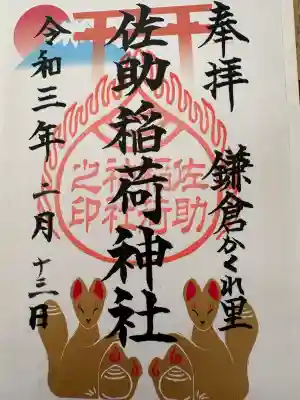 奉拝
鎌倉かくれ里
佐助稲荷神社
佐助稲荷神社之印
令和三年二月十三日